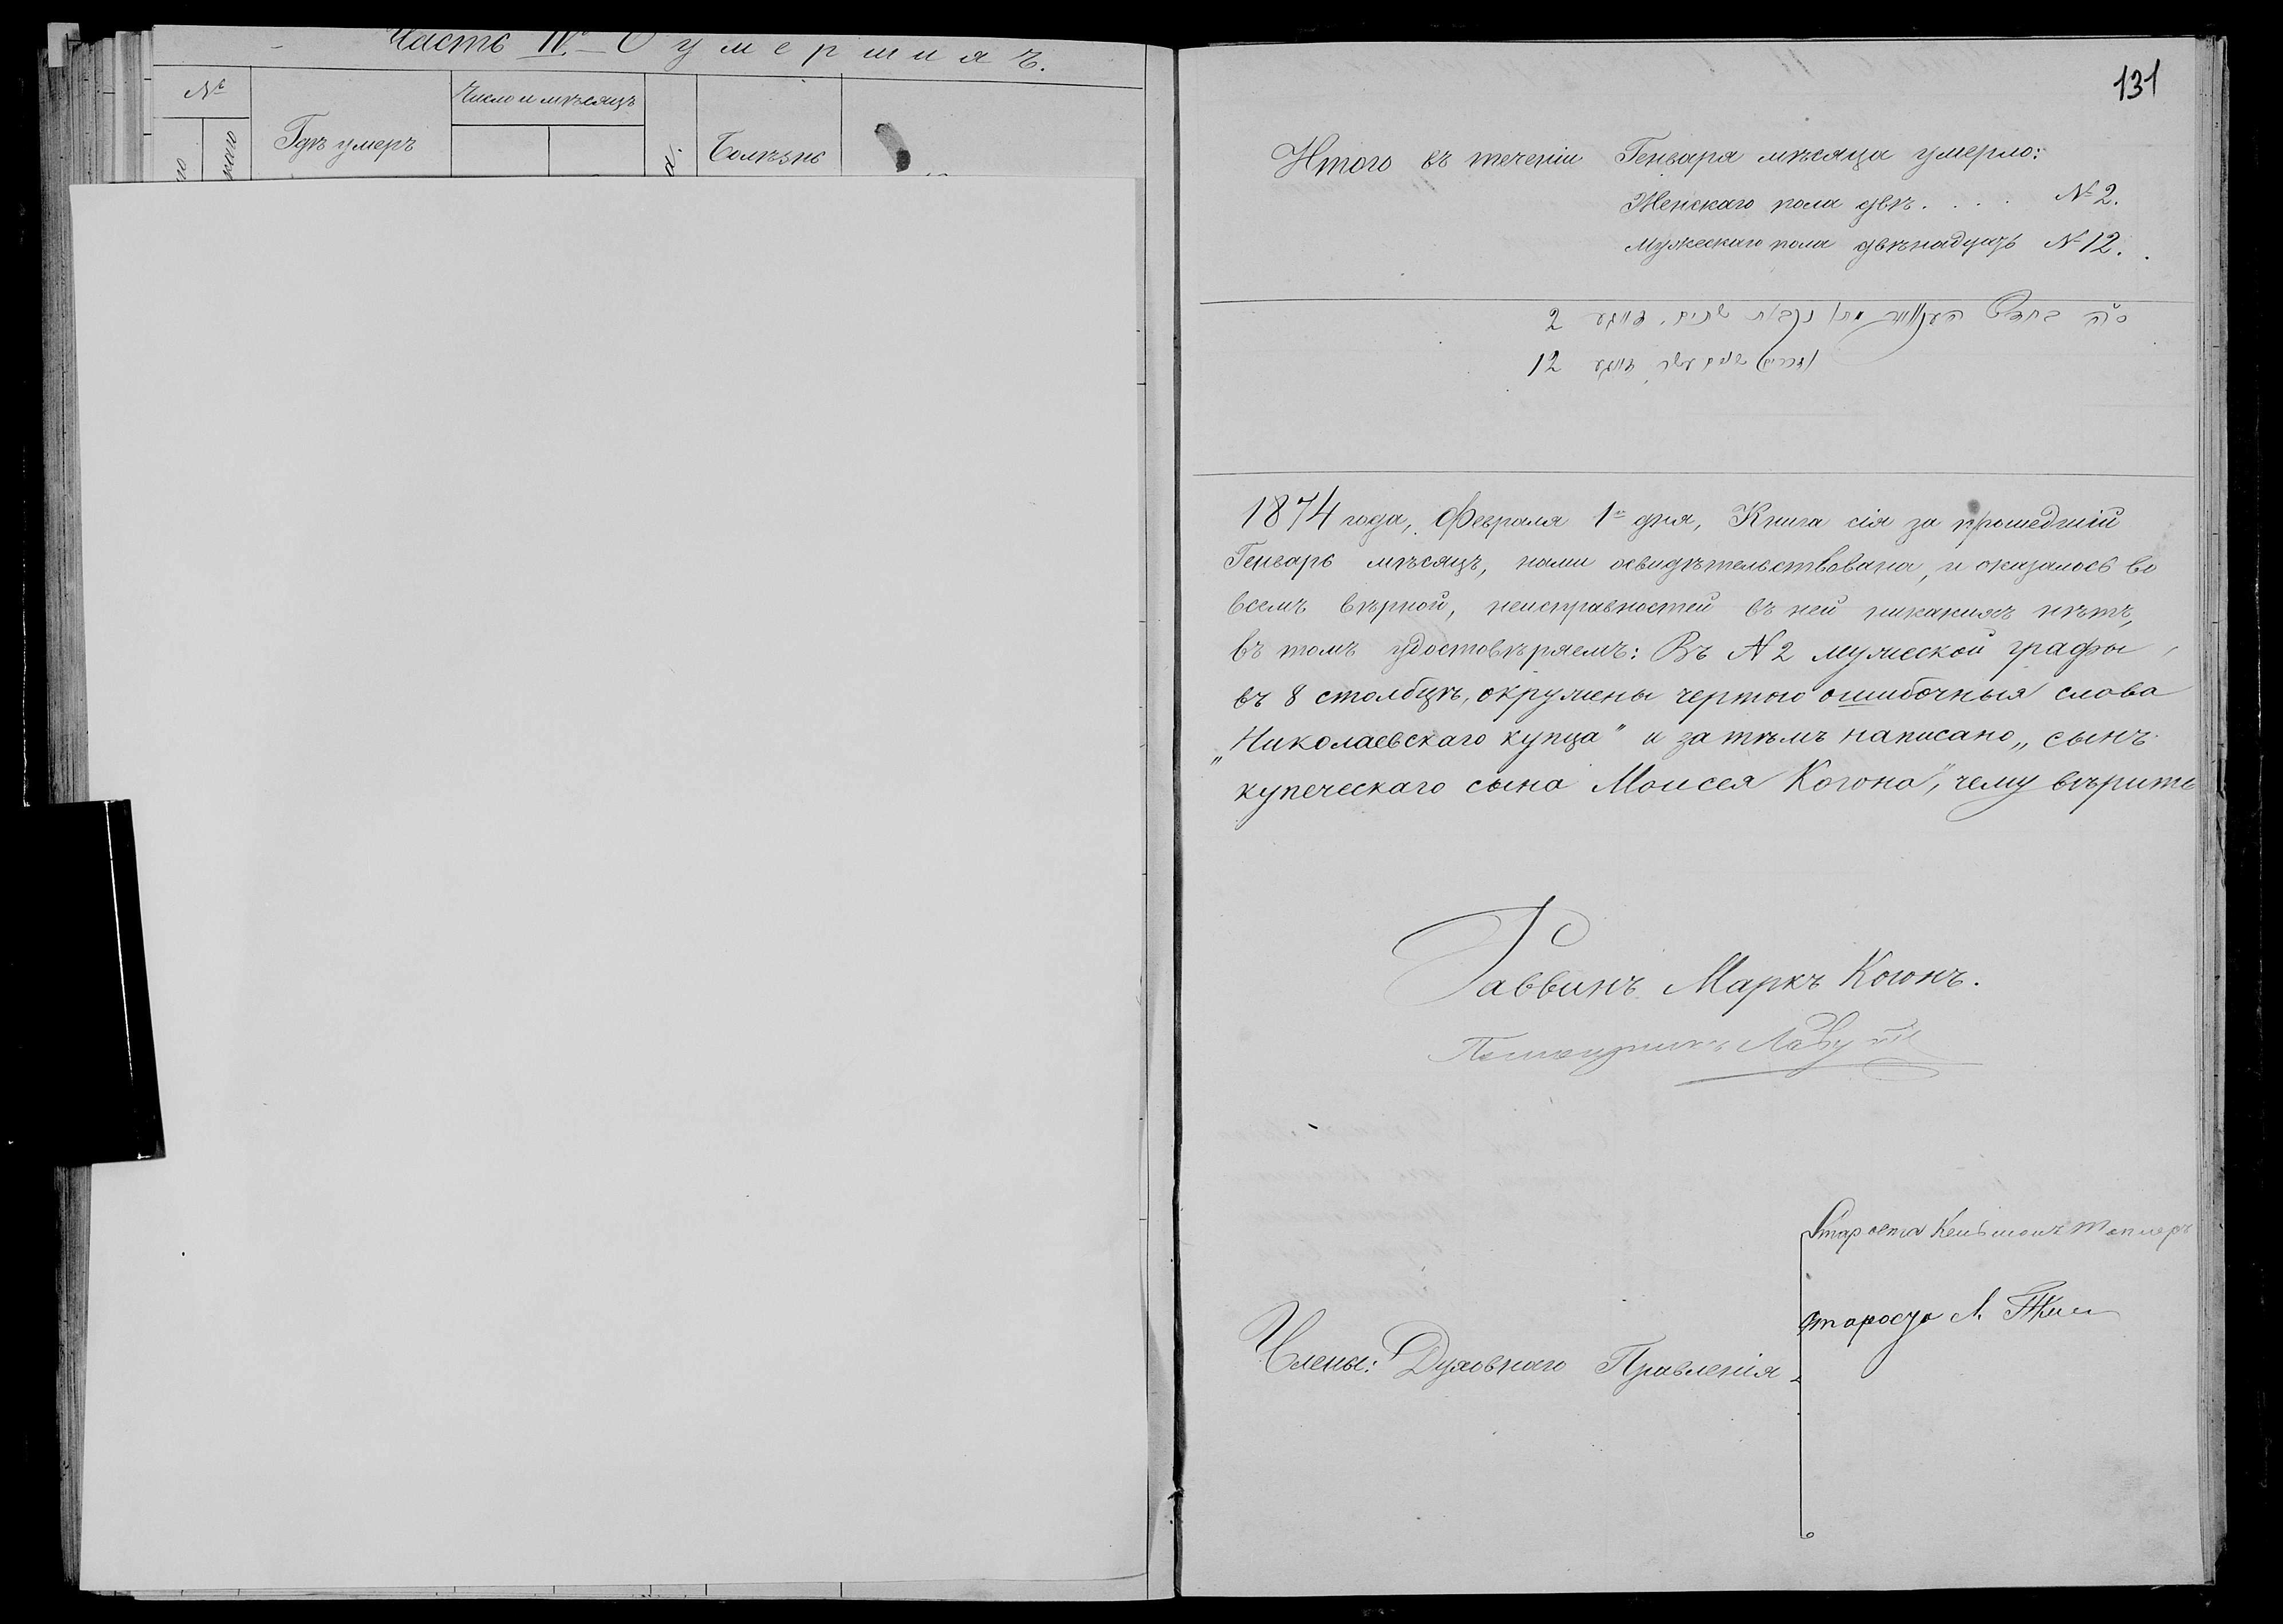 Часть IV. О умершихъ.
№
Число и мѣсяцъ
Гдѣ умеръ
Болѣзнь
131
Итого въ теченіи Генваря мѣсяца умерло:
Женскаго пола двѣ . . . . № 2.
Мужескаго пола двѣнадцать № 12.
2
12
1874 года, Февраля 1го дня, Книга сія за прошедшій
Генварь мѣсяцъ, нами освидѣтельствована, и оказалось во
всемъ вѣрной, неисправностей въ ней никакихъ нѣтъ,
въ томъ удостовѣряемъ: Въ № 2 мужеской графы,
въ 8 столбцѣ, окружены чертою ошибочныя слова
„Николаевскаго купца" и за тѣмъ написано „сынъ
купеческаго сына Моисея Когона", чему вѣрить
Раввинъ Маркъ Когонъ.
Староста
Староста Л.
Члены: Духовнаго Правленія